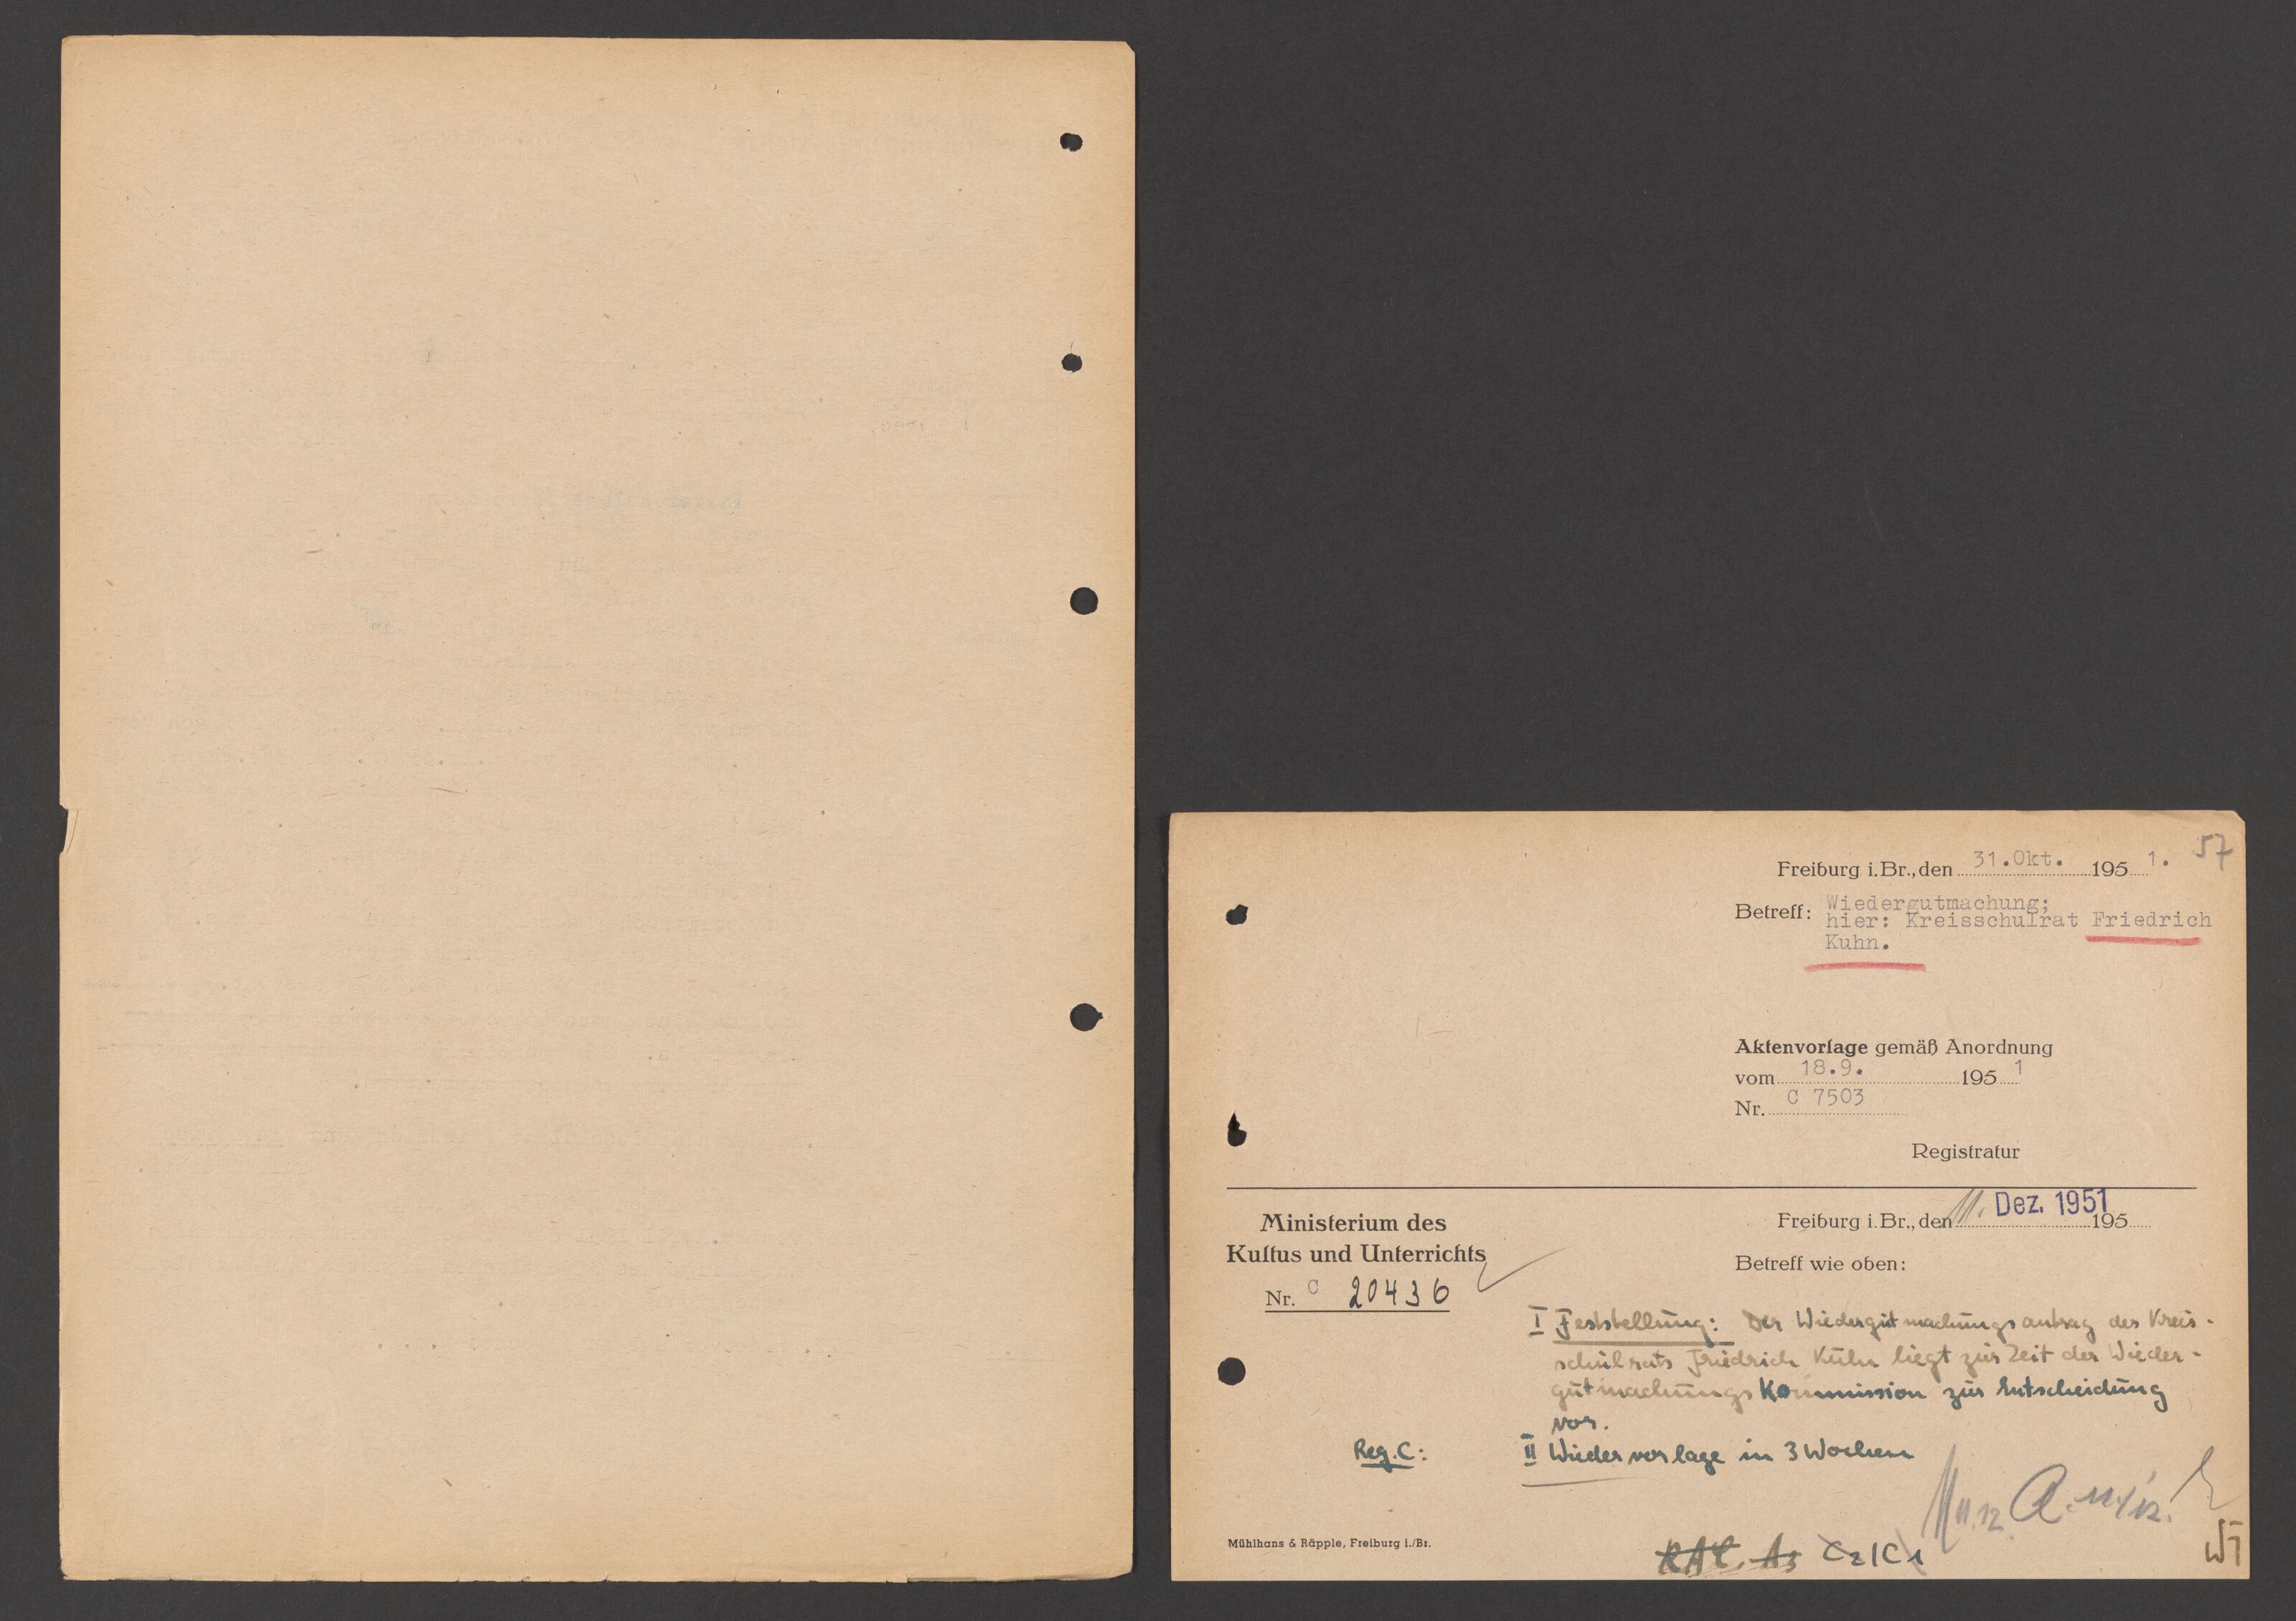 57
Freiburg i.Br., den 31.Okt. 195 1.
Betreff: Wiedergutmachung;
hier: Kreisschulrat Friedrich
Kuhn.
Aktenvorlage gemäß Anordnung
vom 18.9. 195 1
Nr. C 7503
Registratur
Ministerium des
Kultus und Unterrichts
Nr. C 20436
Freiburg i.Br., den 11. Dez. 1951 195
Betreff wie oben:
I Feststellung: Der Wiedergutmachungsantrag des Kreis-
schulrats Friedrich Kuhn liegt zur Zeit der Wieder-
gutmachungsKommission zur Entscheidung
vor.
Reg.C: II Wiedervorlage in 3 Wochen
11.12. A. 11/12.
Mühlhans & Räpple, Freiburg i./Br.
C2/C1